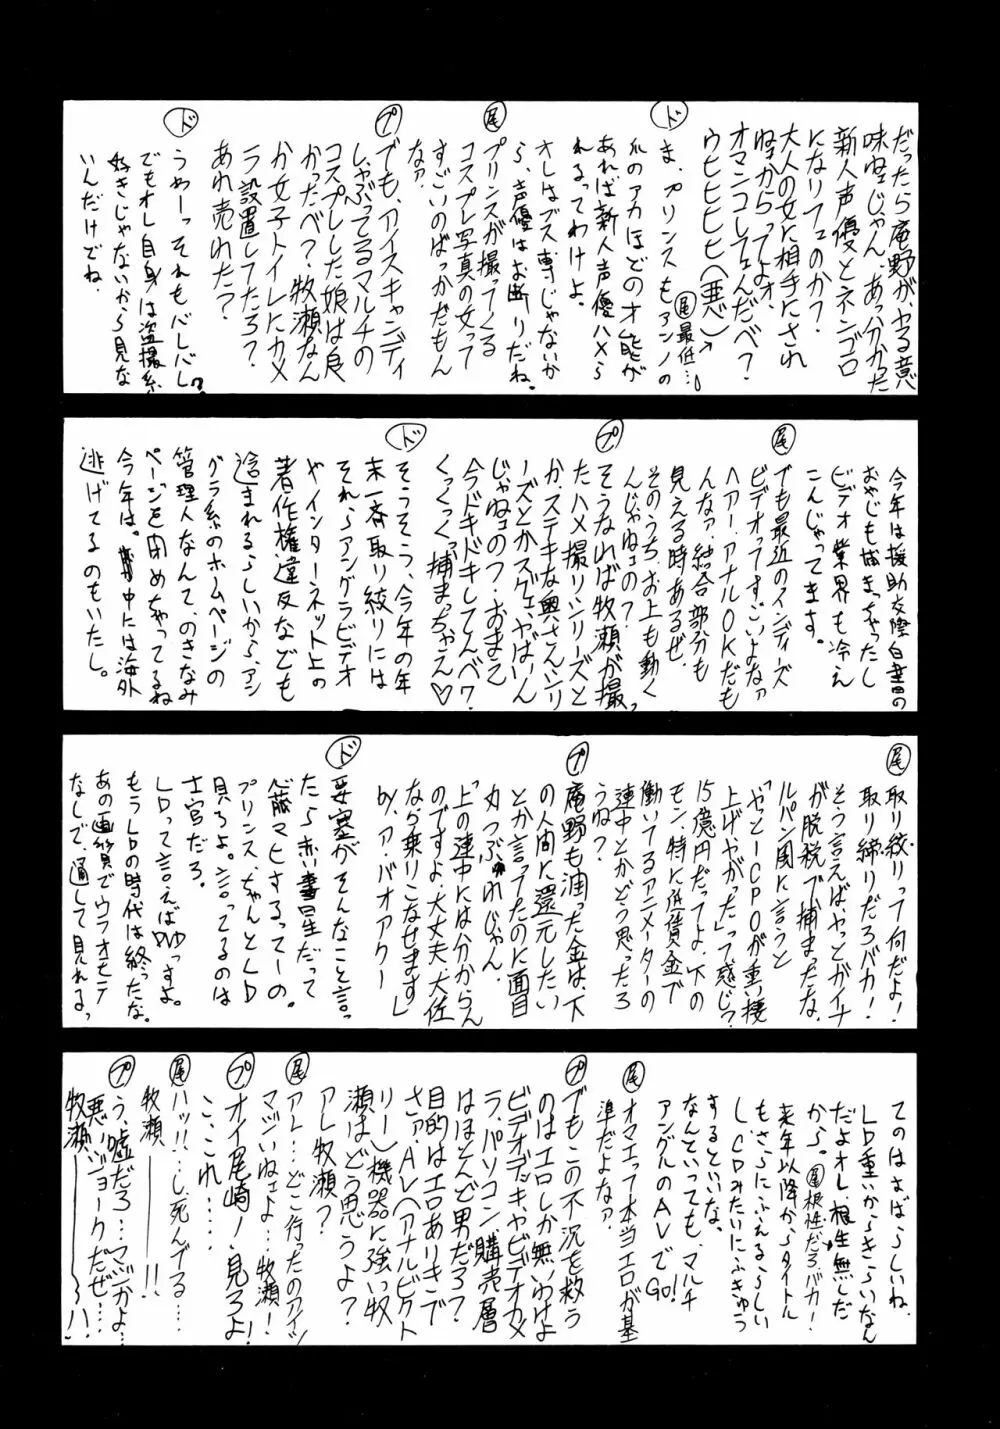 だったら庵野が、ヤる意
味ねェじゃん、あっかかった
新人声優とネンゴロ
になりフェのか？
大人の女に相手にされ
ねェからってよォ、
オマンコレフェんだべ？
ウヒヒヒヒヒ(悪)
尾最低…
ド
ま、プリンスもアンノの
爪のアカほどのオ能が
あれば新人声優ハメら
れるってわけよ。
オレはブス専じゃないか
ら、声優はお断りだね。
尾
プリンスが撮ってくる
コスプレ写真の女って
すごいのばっかだもん
なァ。
プ
でも、アイスキャンディ
しゃぶってるマルチの
コスプレした娘は良
かったべ？牧瀬なん
か女子トイレにカメ
ラ設置してたろ？
あれ売れた？
ド
うわーっそれもバレバレ？
でもオレ自身は盗撮系
好きじゃないから見な
いんだけどね。
今年は援助交際白書の
おやじも捕まっちゃったし
ビデオ業界も冷え
こんじゃってます。
尾
でも最近のインディーズ
ビデオってすごいよなァ
ヘアー・アナルOKだも
んなァ、結合部分も
見える時あるぜ、
そのうち、お上も動く
んじゃねェの？
プ
そうなれば牧瀬が撮っ
たハメ撮りシリーズと
か、ステキな奥さんシリ
ーズとかスゲェ、やばいん
じゃねェの？おまえ
今ドキドキしてんべ？
くっくっくっ捕まっちゃえ♡
ド
そうそう、今年の年
末一斉取り絞りには
それらアングラビデオ
やインターネット上の
著作権違反なども
含まれるらしいから、アン
グラ系のホームページの
管理人なんて、のきなみ
ページを閉めちゃってるね
今年は。中には海外
逃げてるのもいたし。
尾
取り絞りって何だよ！
取り締りだろバカ！
そう言えば、やっとガイナ
が脱税で捕まったな、
ルパン風に言うと
「やっとICPOが重い腰
上げやがった」って感じ？
15億円だってよ、下の
モン、特に低賃金で
働いてるアニメーターの
連中とかどう思ったろ
うね？
プ
庵野も浦った金は、下
の人間に還元したい
とか言ってたのに面目
丸つぶれじゃん。
「上の連中にはわからん
のですよ、大丈夫、大佐
なら乗りこなせます」
by.ア・バオアクー
ド
要塞がそんなこと言っ
たら赤い彗星だって
心臓マヒするってーの。
プリンス、ちゃんとLD
見ろよ。言ってるのは
士官だろ。
LDって言えばDVDっすよ。
もうLDの時代は終ったな。
あの画質でウラオモテ
なしで、通して見れるっ
てのはすばらしいね。
LD重いからきらいなん
だよオレ、根性無しだ
から。尾根性だろ、バカ！
来年以降からタイトル
もさらにふえるらしい
し、CDみたいにふきゅう
するといいな。
なんといっても、マルチ
アングルのAVでGO!
尾
オマエって本当エロが基
準だよなァ。
プ
でもこの不況を救う
のはエロしか無いわけよ
ビデオデッキ、ヤビデオカメ
ラ、パソコン、購売層
はほとんど男だろ？
目的はエロありきで
さァ、AL(アナルビクト
リー)機器に強い牧
瀬はどう思うよ？
アレ牧瀬？
尾
アレ…どこ行ったのアイツ
マジいねェよ…牧瀬！
プ
オイ尾崎！見ろよ！
こ、これ……
尾
ハッ!!…し、死んでる…
牧瀬――――!!
プ
う、嘘だろ…マジかよ…
悪いジョークだぜ…
牧瀬――――～ハ！